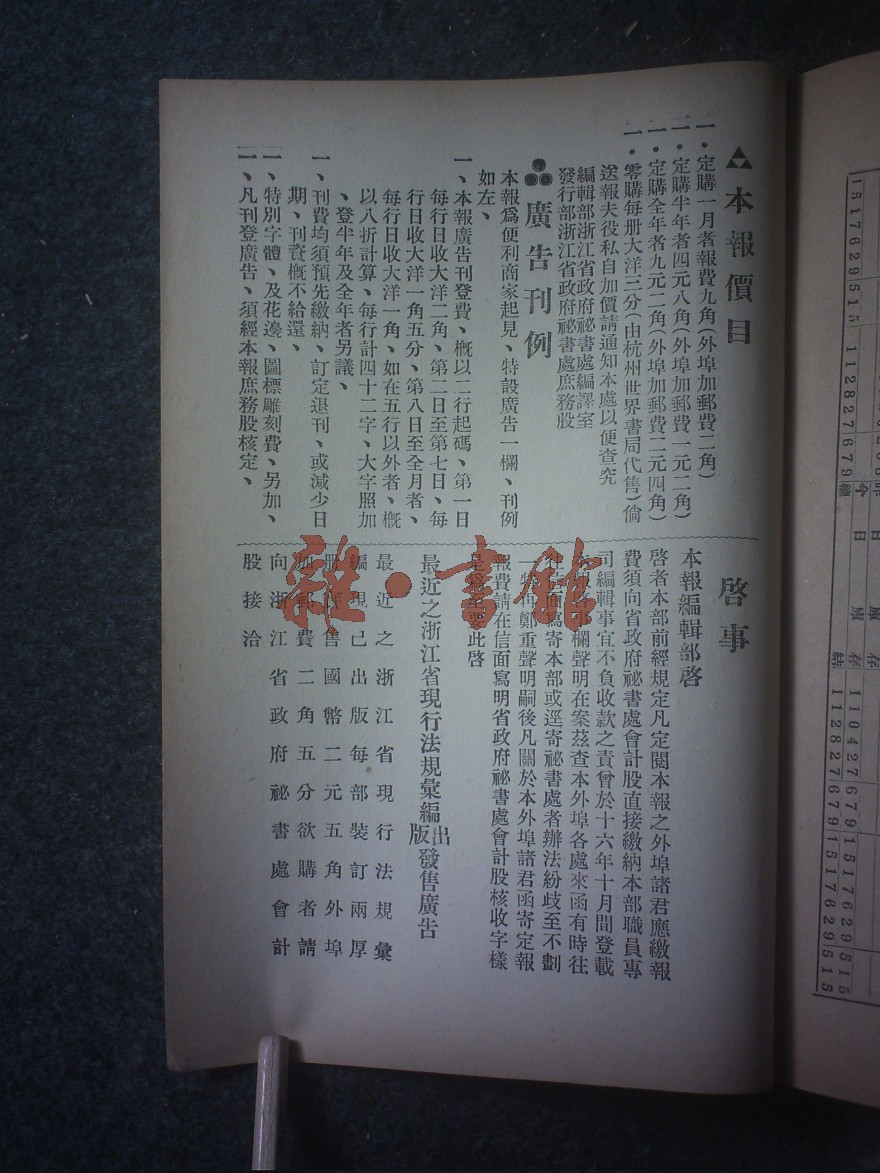 本報價目
一・定購一月者報費九角(外埠加郵費二角)
一・定購半年者四元八角(外埠加郵費一元二角)
一・定購全年者九元二角(外埠加郵費二元四角)
一・零購每册大洋三分(由杭州世界書局代售)倘
送報夫役私自加價請通知本處以便查究
編輯部浙江省政府祕書處編譯室
發行部浙江省政府祕書處庶務股
廣告刊例
本報爲便利商家起見、特設廣告一欄、刊例
如左、
一、本報廣告刊登費、概以二行起碼、第一日
每行日收大洋二角、第二日至第七日、每
行日收大洋一角五分、第八日至全月者、
每行日收大洋一角、如在五行以外者、概
以八折計算、每行計四十二字、大字照加
、登半年及全年者另議、
一、刊費均須預先繳納、訂定退刊、或減少日
期、刊資概不給還、
一、特別字體、及花邊、圖標雕刻費、另加、
一、凡刊登廣告、須經本報庶務股核定、
啓事
本報編輯部啓
啓者本部前經規定凡定閱本報之外埠諸君應繳報
費須向省政府祕書處會計股直接繳納本部職員專
司編輯事宜不負收款之責曾於十六年十月間登載
本報啓事欄聲明在案茲查本外埠各處來函有時往
往信面寫寄本部或逕寄祕書處者辦法紛歧至不劃
一特再鄭重聲明嗣後凡關於本外埠諸君函寄定報
報費請在信面寫明省政府祕書處會計股核收字樣
是爲至要此啓
最近之浙江省現行法規彙編出版發售廣告
最近之浙江省現行法規彙
編現已出版每部裝訂兩厚
册定售國幣二元五角外埠
加郵費二角五分欲購者請
向浙江省政府祕書處會計
股接洽
雜・書館
今日庫存
1517629515
112827679